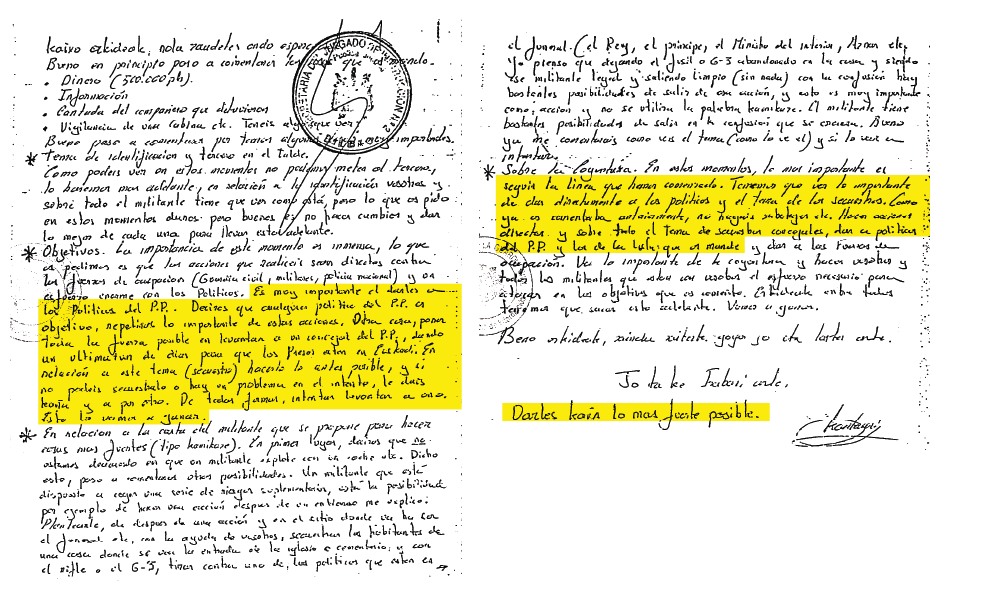 Kaixo adkideok, nola zaudeten ondo
Bueno en principio paso a comentaros los que os mando.
• Dinero (500.000 pts).
• Información
• Cantada del compañero que detuvieron
• Vigilancia de una cabina etc. Teneis
Bueno paso a comentaros por temas algunas importantes.
* Tema de identificación y tercero en el Talde.
Como podeis ver en estos momentos no podemos meter al tercero,
lo haremos mas adelante, en relación a la identificación vosotros y
sobre todo el militante tiene que ver como está, pero lo que os pido
en estos momentos duros pero buenos es no hacer cambios y dar
lo mejor de cada uno para llevar esto adelante.
* Objetivos. La importancia de este momento es inmensa, lo que
os pedimos es que las acciones que realiceis sean directas contra
las fuerzas de ocupacion (Guardia civil, militares, policia nacional) y un
esfuerzo enorme con los Politicos. Es muy importante el darles a
los Politicos del P.P. Deciros que cualquier politico del P.P. es
objetivo, repetiros lo importante de estas acciones. Otra cosa, poner
toda la fuerza posible en levantar a un concejal del P.P., dando
un ultimatun de dias para que los Presos esten en Euskadi. En
relación a este tema (secuestro) hacerlo lo antes posible, y si
no podeis secuestrarlo o hay un problema en el intento, le dais
kaña y a por otro. De todas formas, intentar levantar a uno.
Esto lo vamos a ganar.
* En relacion a la carta del militante que se propone para hacer
cosas mas fuertes (tipo kamikaze). En primer lugar, deciros que no
estamos deacuerdo en que un militante explote con un coche etc. Dicho
esto, paso a comentaros otras posibilidades. Un militante que está
dispuesto a coger una serie de riesgos suplementarios, está la posibilidad
por ejemplo de hacer una acción despues de un entierro me explico:
Plantearte, de despues de una acción y en el sitio donde va ha ser
el funeral etc, con la ayuda de vosotros, secuestrar los habitantes de
una casa donde se vea la entrada de la iglesia o cementerio, y con
el rifle o el G-3, tirar contra uno de, los politicos que esten en
el funeral. (el Rey, el principe, el Ministro del interior, Aznar etc.
Yo pienso que dejando el fusil o G-3 abandonado en la casa y siendo
ese militante legal y saliendo limpio (sin nada) con la confusión hay
bastantes posibilidades de salir de esa acción, y esto es muy importante
como acción y no se utiliza la palabra kamikaze. El militante tiene
bastantes posibilidades de salir en la confusión que se creara. Bueno
ya me comentareis como veis el tema (como lo ve el) y si lo veis a
intentarlo.
* Sobre la Coyuntura. En estos momentos, lo mas importante es
seguir la linea que hemos comenzado. Tenemos que ver lo importante
de dar directamente a los politicos y el tema de los secuestros. Como
ya os comentaba anteriormente, no hagais sabotajes etc. Hacer acciones
directas y sobre todo el tema de secuestrar concejales, dar a politicos
del P.P. y los de la lista que os mando y dar a las Fuerzas de
ocupación. Ver lo importante de la coyuntura y hacer vosotros y
todos los militantes que estan con vosotros el esfuerzo necesario para
acertar en los objetivos que os comento. Eskideak entre todos
tenemos que sacar esto adelante. Vamos a ganar.
Beno adkideak, zaindu zaitezte. gogor jo eta laster arte.
Jo ta ke Irabazi arte.
Darles kaña lo mas fuerte posible.
Kantauri